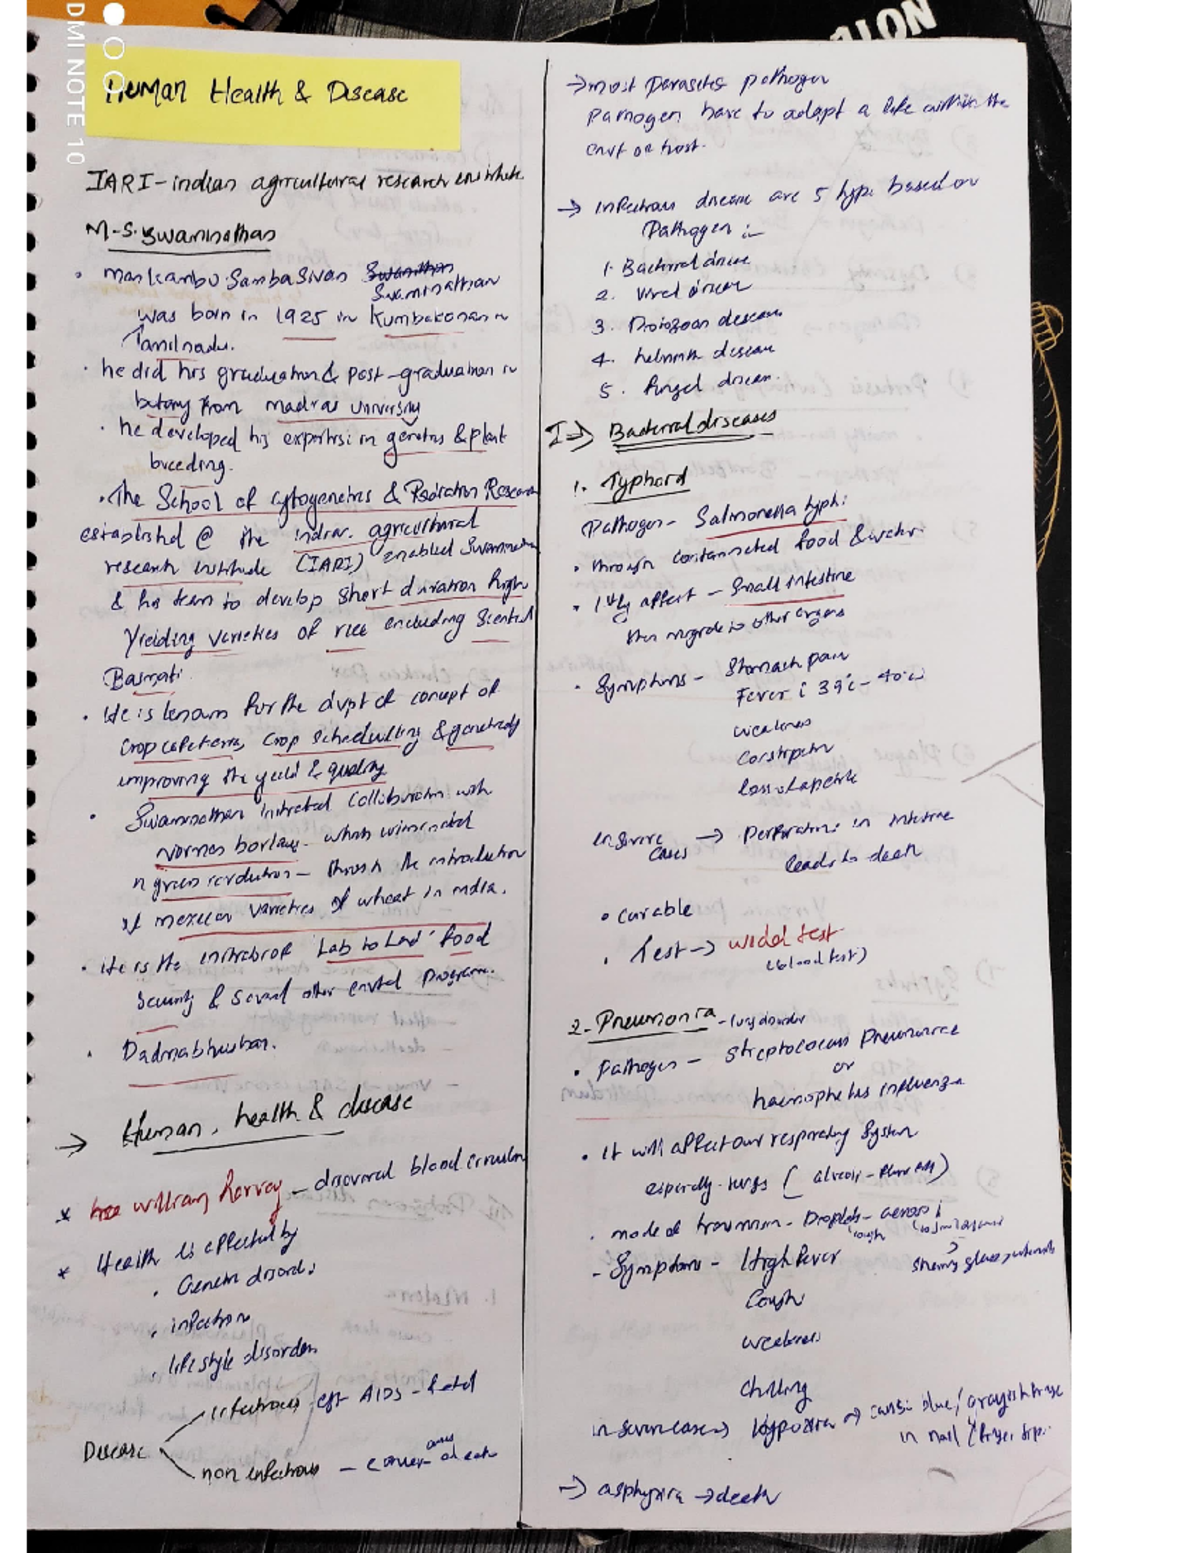 DMI NOTE 10
ALON
Human Health & Disease
IARI-indian agricultural research institute
M-S. Swaminathan
Mankambu SambaSivan
Swaminathan
was born in 1925 in Kumbakonam
Tamilnadu.
he did his graduation & post-graduation in
botany from madras university
he developed his expertise in genetics & plant
breeding.
The School of cytogenetics & Radiation Research
established @ the indian agricultural
research institute (IARI) enabled Swaminathan
& his team to develop short duration high
yielding varieties of rice including scented
Basmati.
He is known for the dvpt of concept of
crop cafeteria, crop scheduling & genetically
improving the yield & quality
Swaminathan initiated collaboration with
Norman borlaug
n green revolution - through the introduction
of mexican varieties of wheat in india.
He is the initiator of 'Lab to Land' food
security & several other programs.
Padmabhushan.
→ Human health & disease
* William Harvey - discovered blood circulation
* Health is affected by
. Genetic disorders
. infection
. lifestyle disorders
Disease
infectious AIDS - fatal
non infectious - cancer - death
→ most Parasites pathogen
Pathogen have to adapt a life within the
envt of host.
→ infectious disease are 5 type based on
Pathogen :-
1. Bacterial disease
2. Viral disease
3. Protozoan disease
4. helminth disease
5. Fungal disease
I ⇒ Bacterial diseases
1. Typhoid
Pathogen - Salmonella typhi
. through contaminated food & water
. 1stly affect - Small intestine
then migrate to other organs
. Symptoms - Stomach pain
Fever ( 39°c - 40°c)
weakness
Constipation
loss of apetite
in severe cases → Perforation in intestine
leads to death
• Curable
. Test → widal test
(blood test)
2. Pneumonia - lung disorder
. Pathogen - Streptococcus Pneumoniae
or
haemophelus influenza
. It will affect our respiratory System
especially lungs ( alveoli
. mode of transmission - Droplets - aerosol
cough
Sharing glasses, utensils
- Symptoms - High Fever
Cough
weakness
Chilling
in severe case → Hypoxia → cause blue/grayish
in nail / finger tips.
→ asphyxia → death